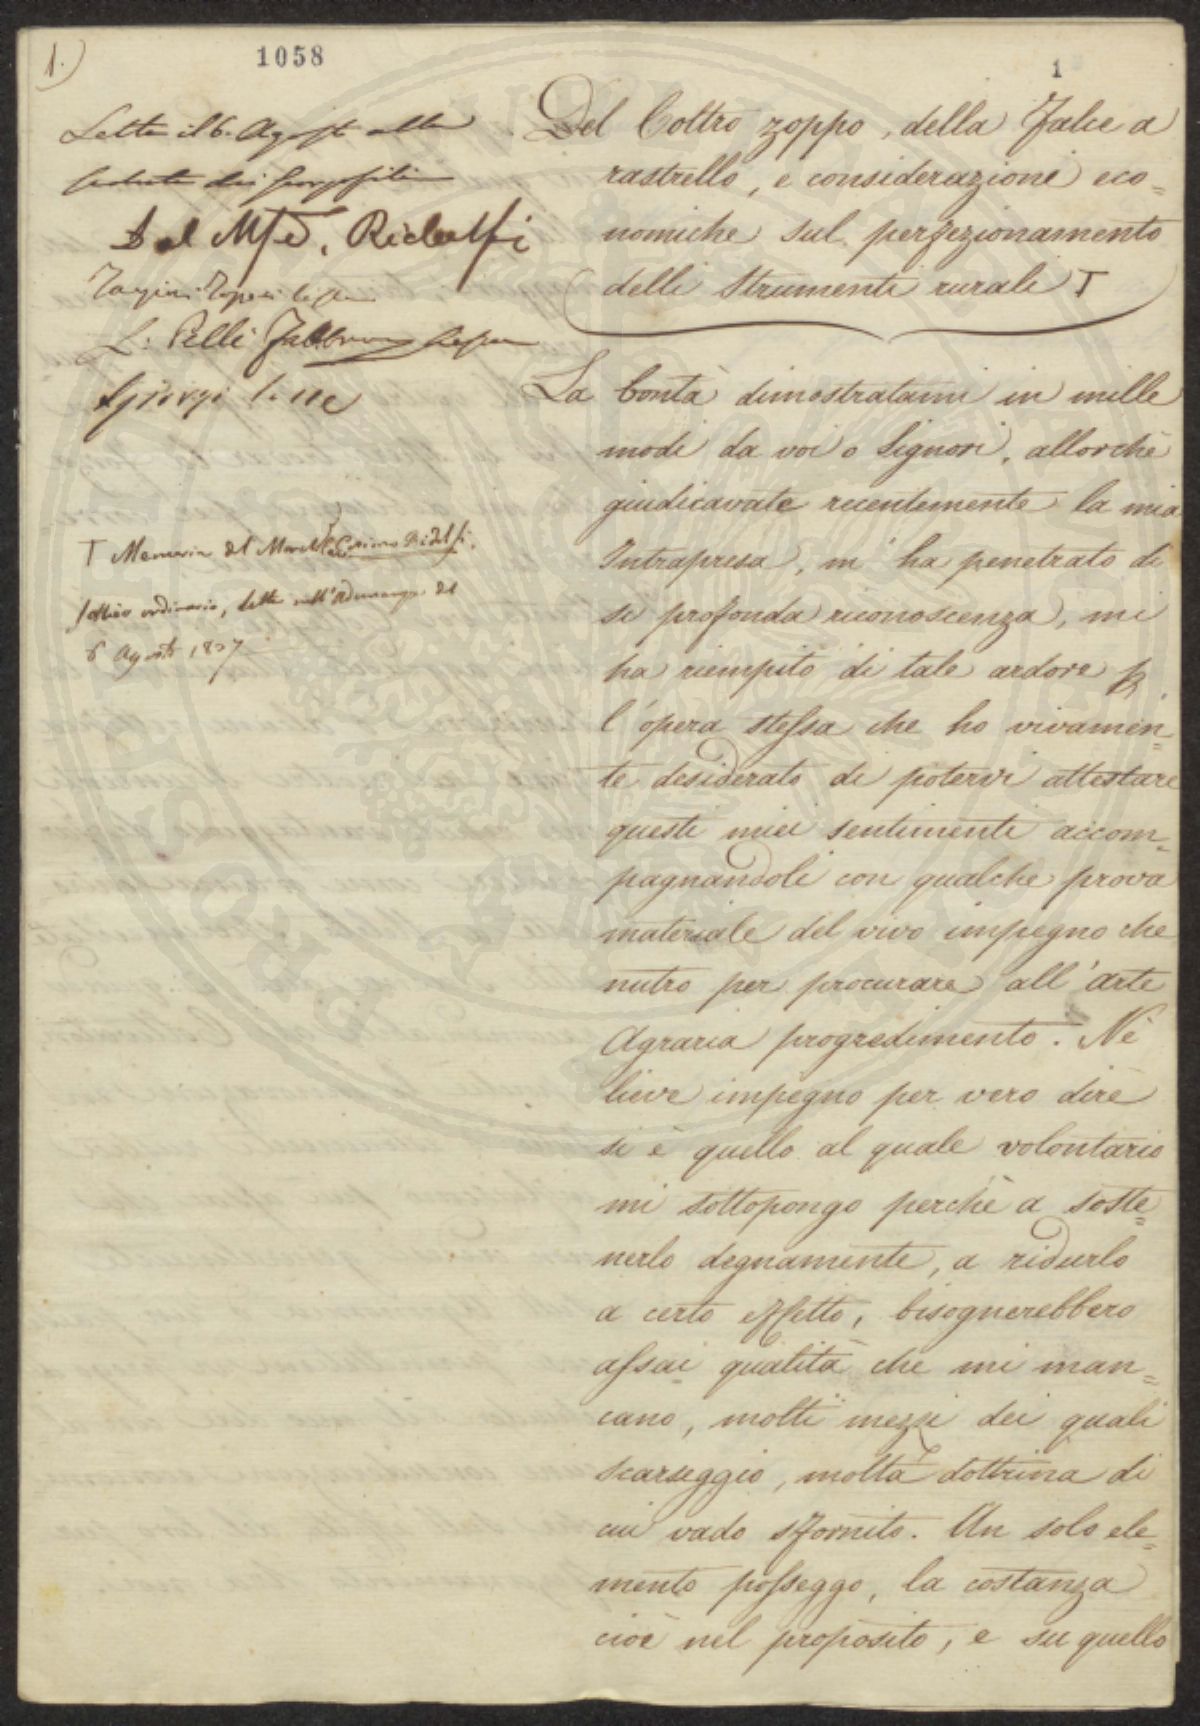 1.
1058
1
Letta il 6. Agosto alla
seduta dei Georgofili
Dal M.se Ridolfi
L: Pelli Fabbroni
T Memoria del March. Cosimo Ridolfi,
Socio ordinario, letta nell'Adunanza del
6 Agosto 1837
Del Coltro zoppo, della Falce a
rastrello, e considerazioni eco=
nomiche sul perfezionamento
delli Strumenti rurali T
La bontà dimostratami in mille
modi da voi o Signori, allorchè
giudicavate recentemente la mia
Intrapresa, m'ha penetrato di
sì profonda riconoscenza, mi
ha riempito di tale ardore p
l'opera stessa che ho vivamen=
te desiderato di potervi attestare
questi miei sentimenti accom=
pagnandoli con qualche prova
materiale del vivo impegno che
nutro per procurare all'arte
Agraria progredimento. Nè
lieve impegno per vero dire
si è quello al quale volontario
mi sottopongo perchè a soste=
nerlo degnamente, a ridurlo
a certo effetto, bisognerebbero
assai qualità che mi man=
cano, molti mezzi dei quali
scarseggio, molta dottrina di
cui vado sfornito. Un solo ele=
mento posseggo, la costanza
cioè nel proposito, e su quello